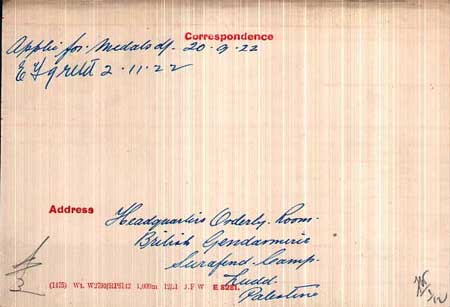 Correspondence
Applic for medals d/. 20.9.22
2.11.22
Address
Headquarters Orderly Room.
British Gendarmerie
Surafend Camp.
Ludd.
Palestine
1,000m 12/21 J.F.W E 8281